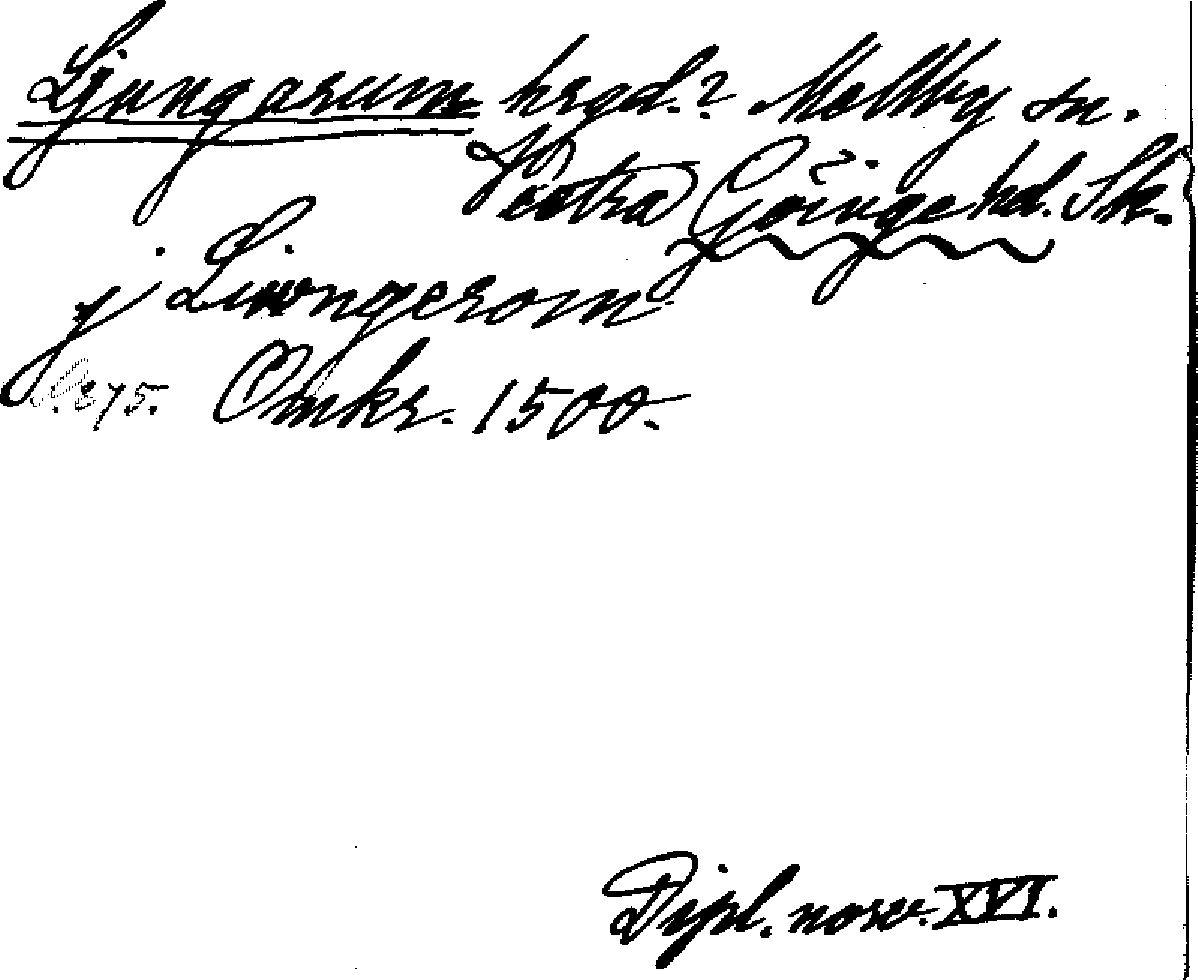 Ljungarum hrgd.? Mellby sn.
Västra Göinge hd. Sk.
j Liwngerom
S. 275. Omkr. 1500.
Dipl. norv. XVI.